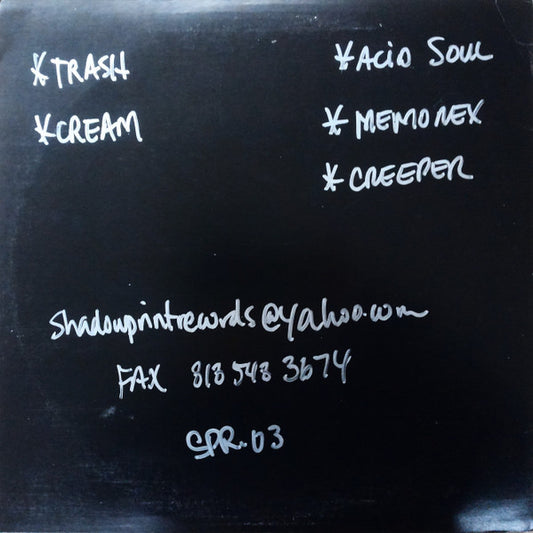 *TRASH
*CREAM
*ACID SOUL
*MEMOREX
*CREEPER
shadowprintrecords@yahoo.com
FAX 818 548 3674
SPR-03